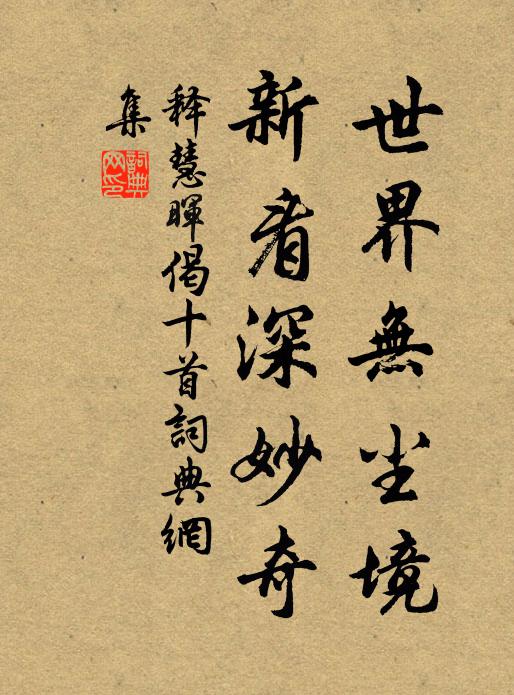 世界無尘境
新看深妙奇
释慧暉偈十首詞典網
集
詞典
网印